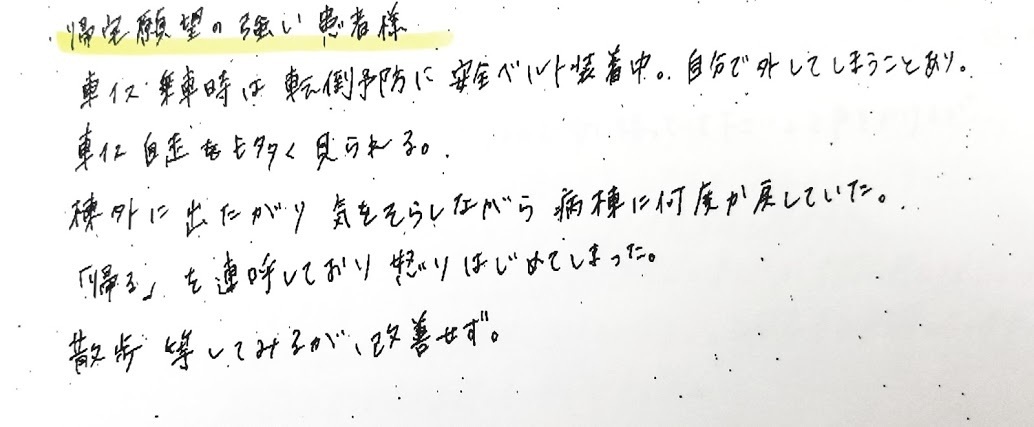 帰宅願望の強い患者様
車イス乗車時は転倒予防に安全ベルト装着中。自分で外してしまうことあり。
車イス自走も多く見られる。
棟外に出たがり気をそらしながら病棟に何度か戻していた。
「帰る」を連呼しており怒りはじめてしまった。
散歩等してみるが、改善せず。